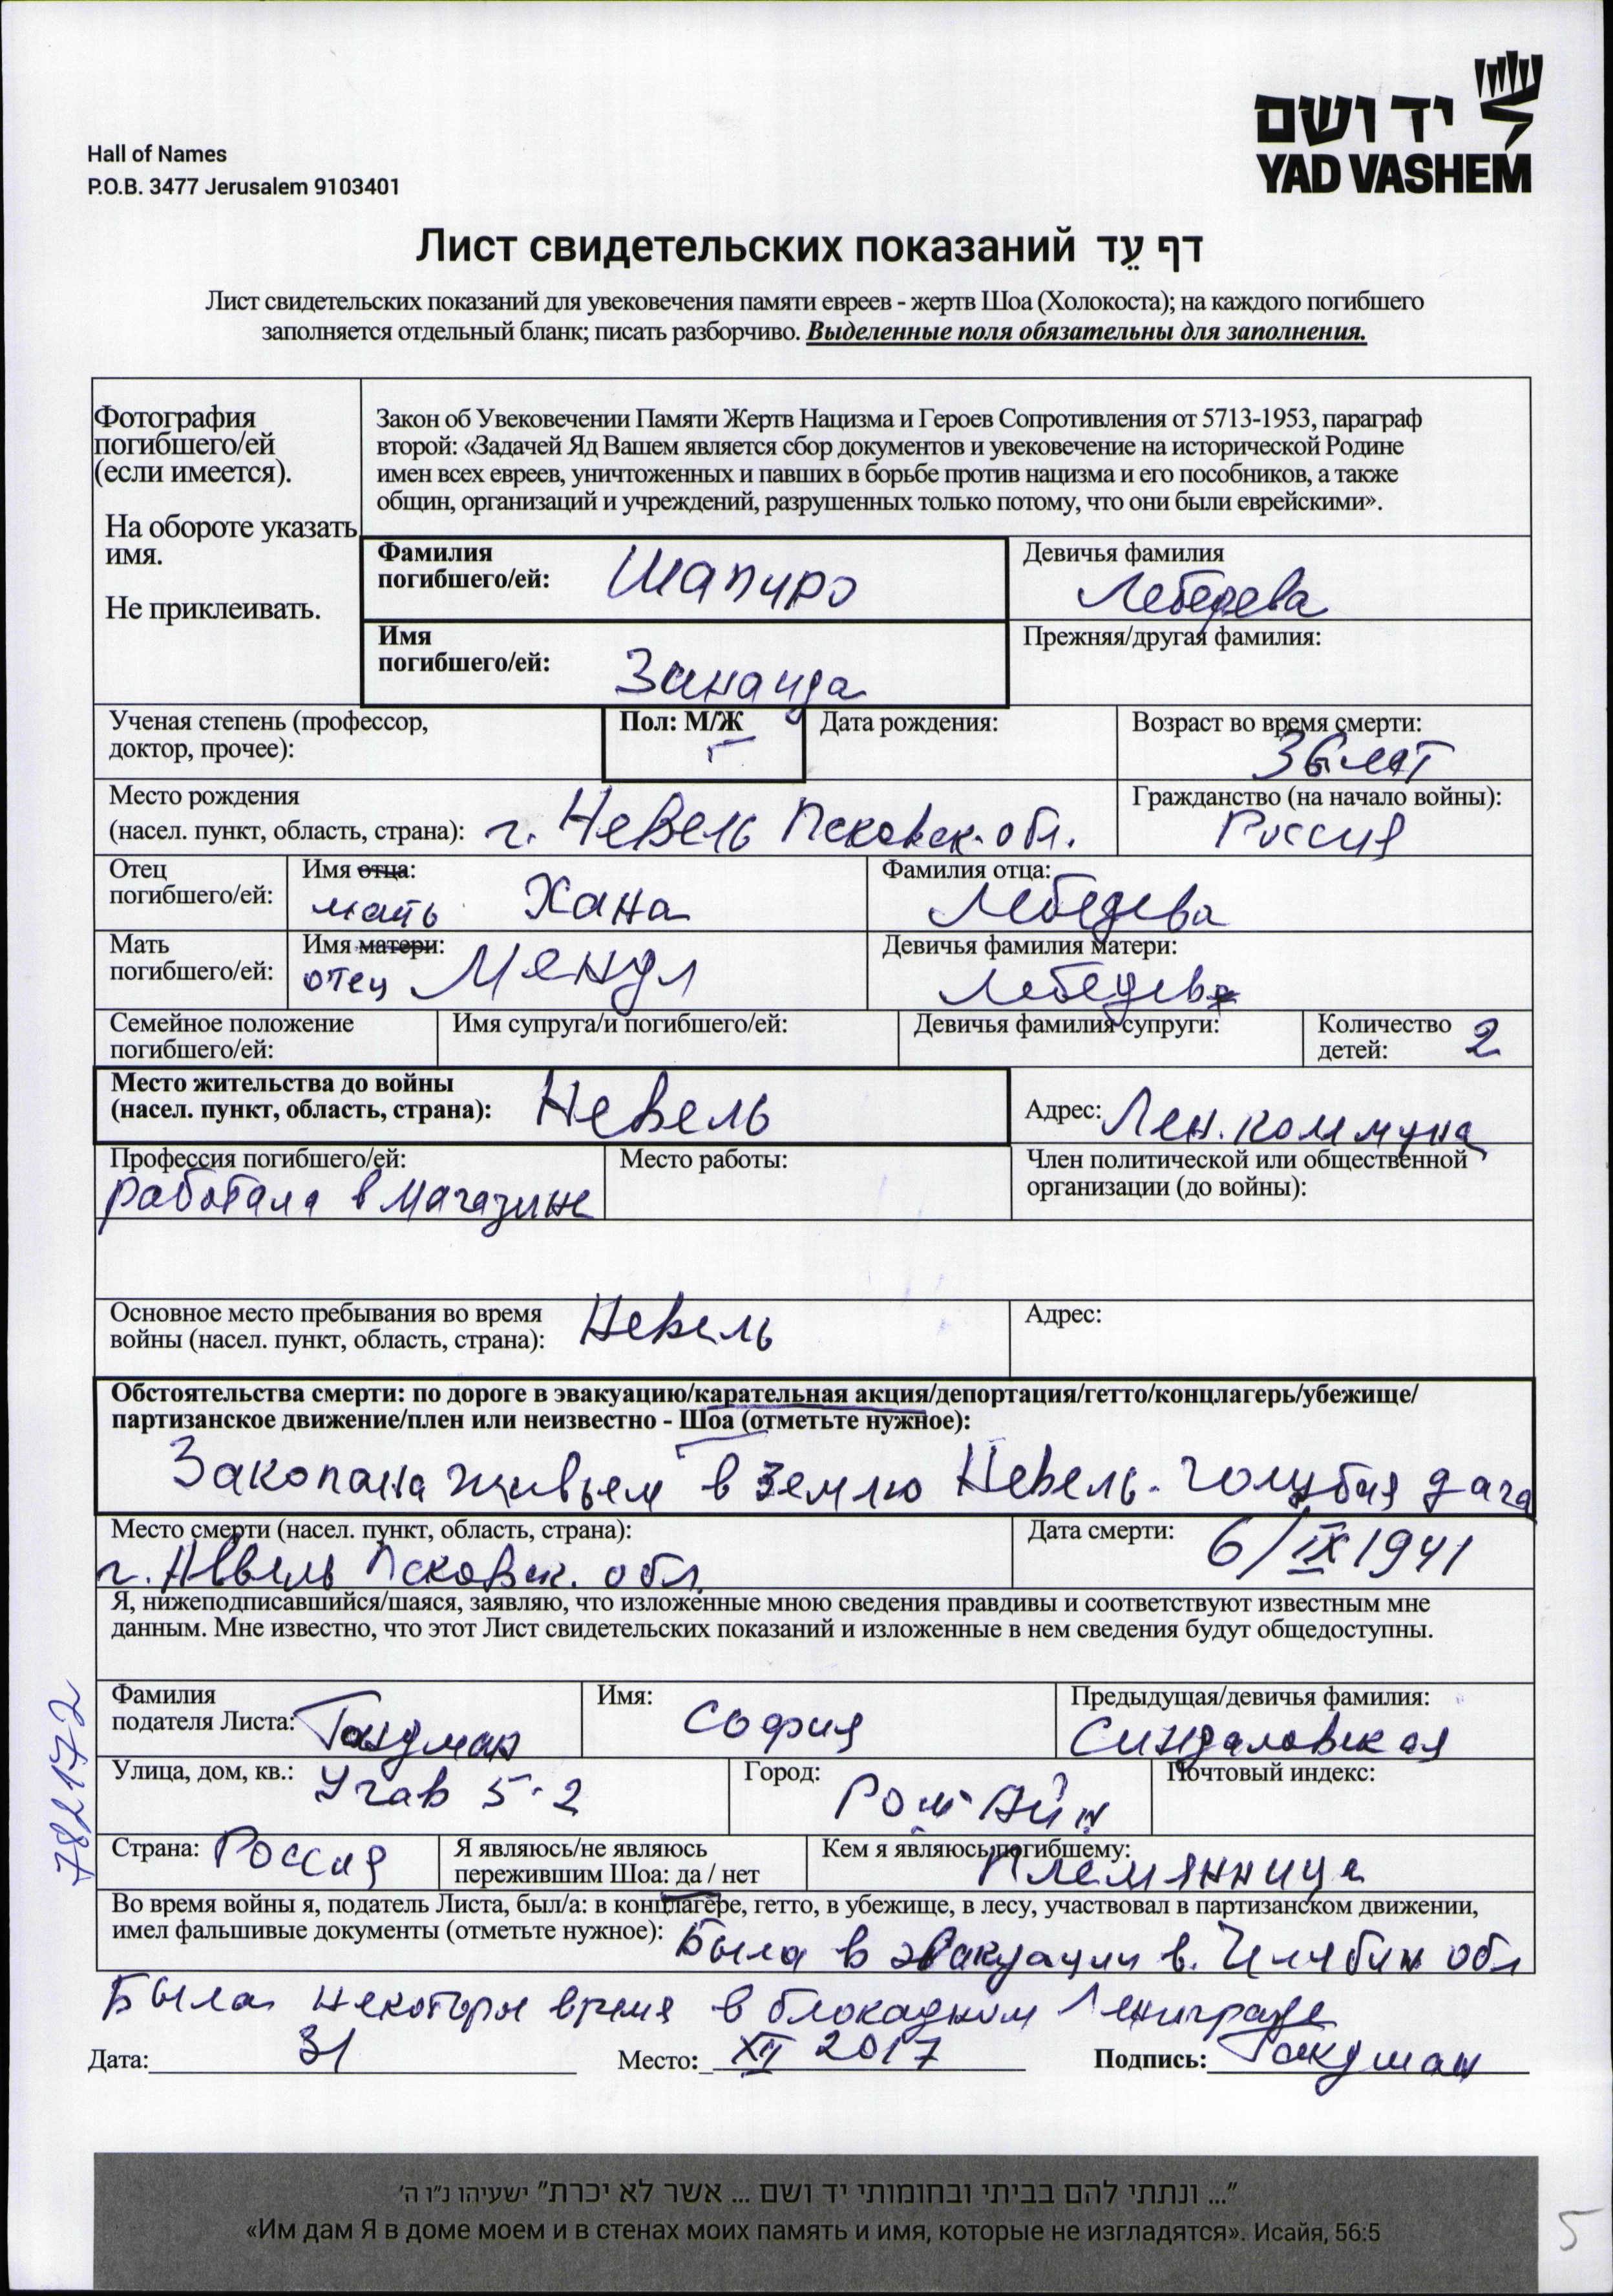 יד ושם
YAD VASHEM
Hall of Names
P.O.B. 3477 Jerusalem 9103401
Лист свидетельских показаний דף עֵד
Лист свидетельских показаний для увековечения памяти евреев - жертв Шоа (Холокоста); на каждого погибшего
заполняется отдельный бланк; писать разборчиво. Выделенные поля обязательны для заполнения.
Фотография
погибшего/ей
(если имеется).
На обороте указать
имя.
Не приклеивать.
Закон об Увековечении Памяти Жертв Нацизма и Героев Сопротивления от 5713-1953, параграф
второй: «Задачей Яд Вашем является сбор документов и увековечение на исторической Родине
имен всех евреев, уничтоженных и павших в борьбе против нацизма и его пособников, а также
общин, организаций и учреждений, разрушенных только потому, что они были еврейскими».
Фамилия
погибшего/ей: Шапиро
Девичья фамилия
Лебедева
Имя
погибшего/ей: Зинаида
Прежняя/другая фамилия:
Ученая степень (профессор,
доктор, прочее):
Пол: М/Ж
Дата рождения:
Возраст во время смерти:
36 лет
Место рождения
(насел. пункт, область, страна): г. Невель Псковск. обл.
Гражданство (на начало войны):
Россия
Отец
погибшего/ей:
Имя отца:
мать Хана
Фамилия отца:
Лебедева
Мать
погибшего/ей:
Имя матери:
отец Мендл
Девичья фамилия матери:
Лебедев
Семейное положение
погибшего/ей:
Имя супруга/и погибшего/ей:
Девичья фамилия супруги:
Количество
детей: 2
Место жительства до войны
(насел. пункт, область, страна): Невель
Адрес: Лен. коммуна
Профессия погибшего/ей:
работала в магазине
Место работы:
Член политической или общественной
организации (до войны):
Основное место пребывания во время
войны (насел. пункт, область, страна): Невель
Адрес:
Обстоятельства смерти: по дороге в эвакуацию/карательная акция/депортация/гетто/концлагерь/убежище/
партизанское движение/плен или неизвестно - Шоа (отметьте нужное):
Закопана живьем в землю Невель. голубая дача
Место смерти (насел. пункт, область, страна):
г. Невель Псковск. обл.
Дата смерти: 6/IX 1941
Я, нижеподписавшийся/шаяся, заявляю, что изложенные мною сведения правдивы и соответствуют известным мне
данным. Мне известно, что этот Лист свидетельских показаний и изложенные в нем сведения будут общедоступны.
Фамилия
подателя Листа:
Имя: София
Предыдущая/девичья фамилия:
Синдаловская
Улица, дом, кв.: Угав 5-2
Город: Рош-Айн
Почтовый индекс:
Страна: Россия
Я являюсь/не являюсь
пережившим Шоа: да / нет
Кем я являюсь погибшему:
Племянница
Во время войны я, податель Листа, был/а: в концлагере, гетто, в убежище, в лесу, участвовал в партизанском движении,
имел фальшивые документы (отметьте нужное): Была в эвакуации в. Челябин обл
Была некоторое время в блокадном Ленинграде
Дата: 31 Место: XII 2017 Подпись:
782172
"... ונתתי להם בביתי ובחומותי יד ושם ... אשר לא יכרת" ישעיהו נ"ו ה'
«Им дам Я в доме моем и в стенах моих память и имя, которые не изгладятся». Исайя, 56:5
5